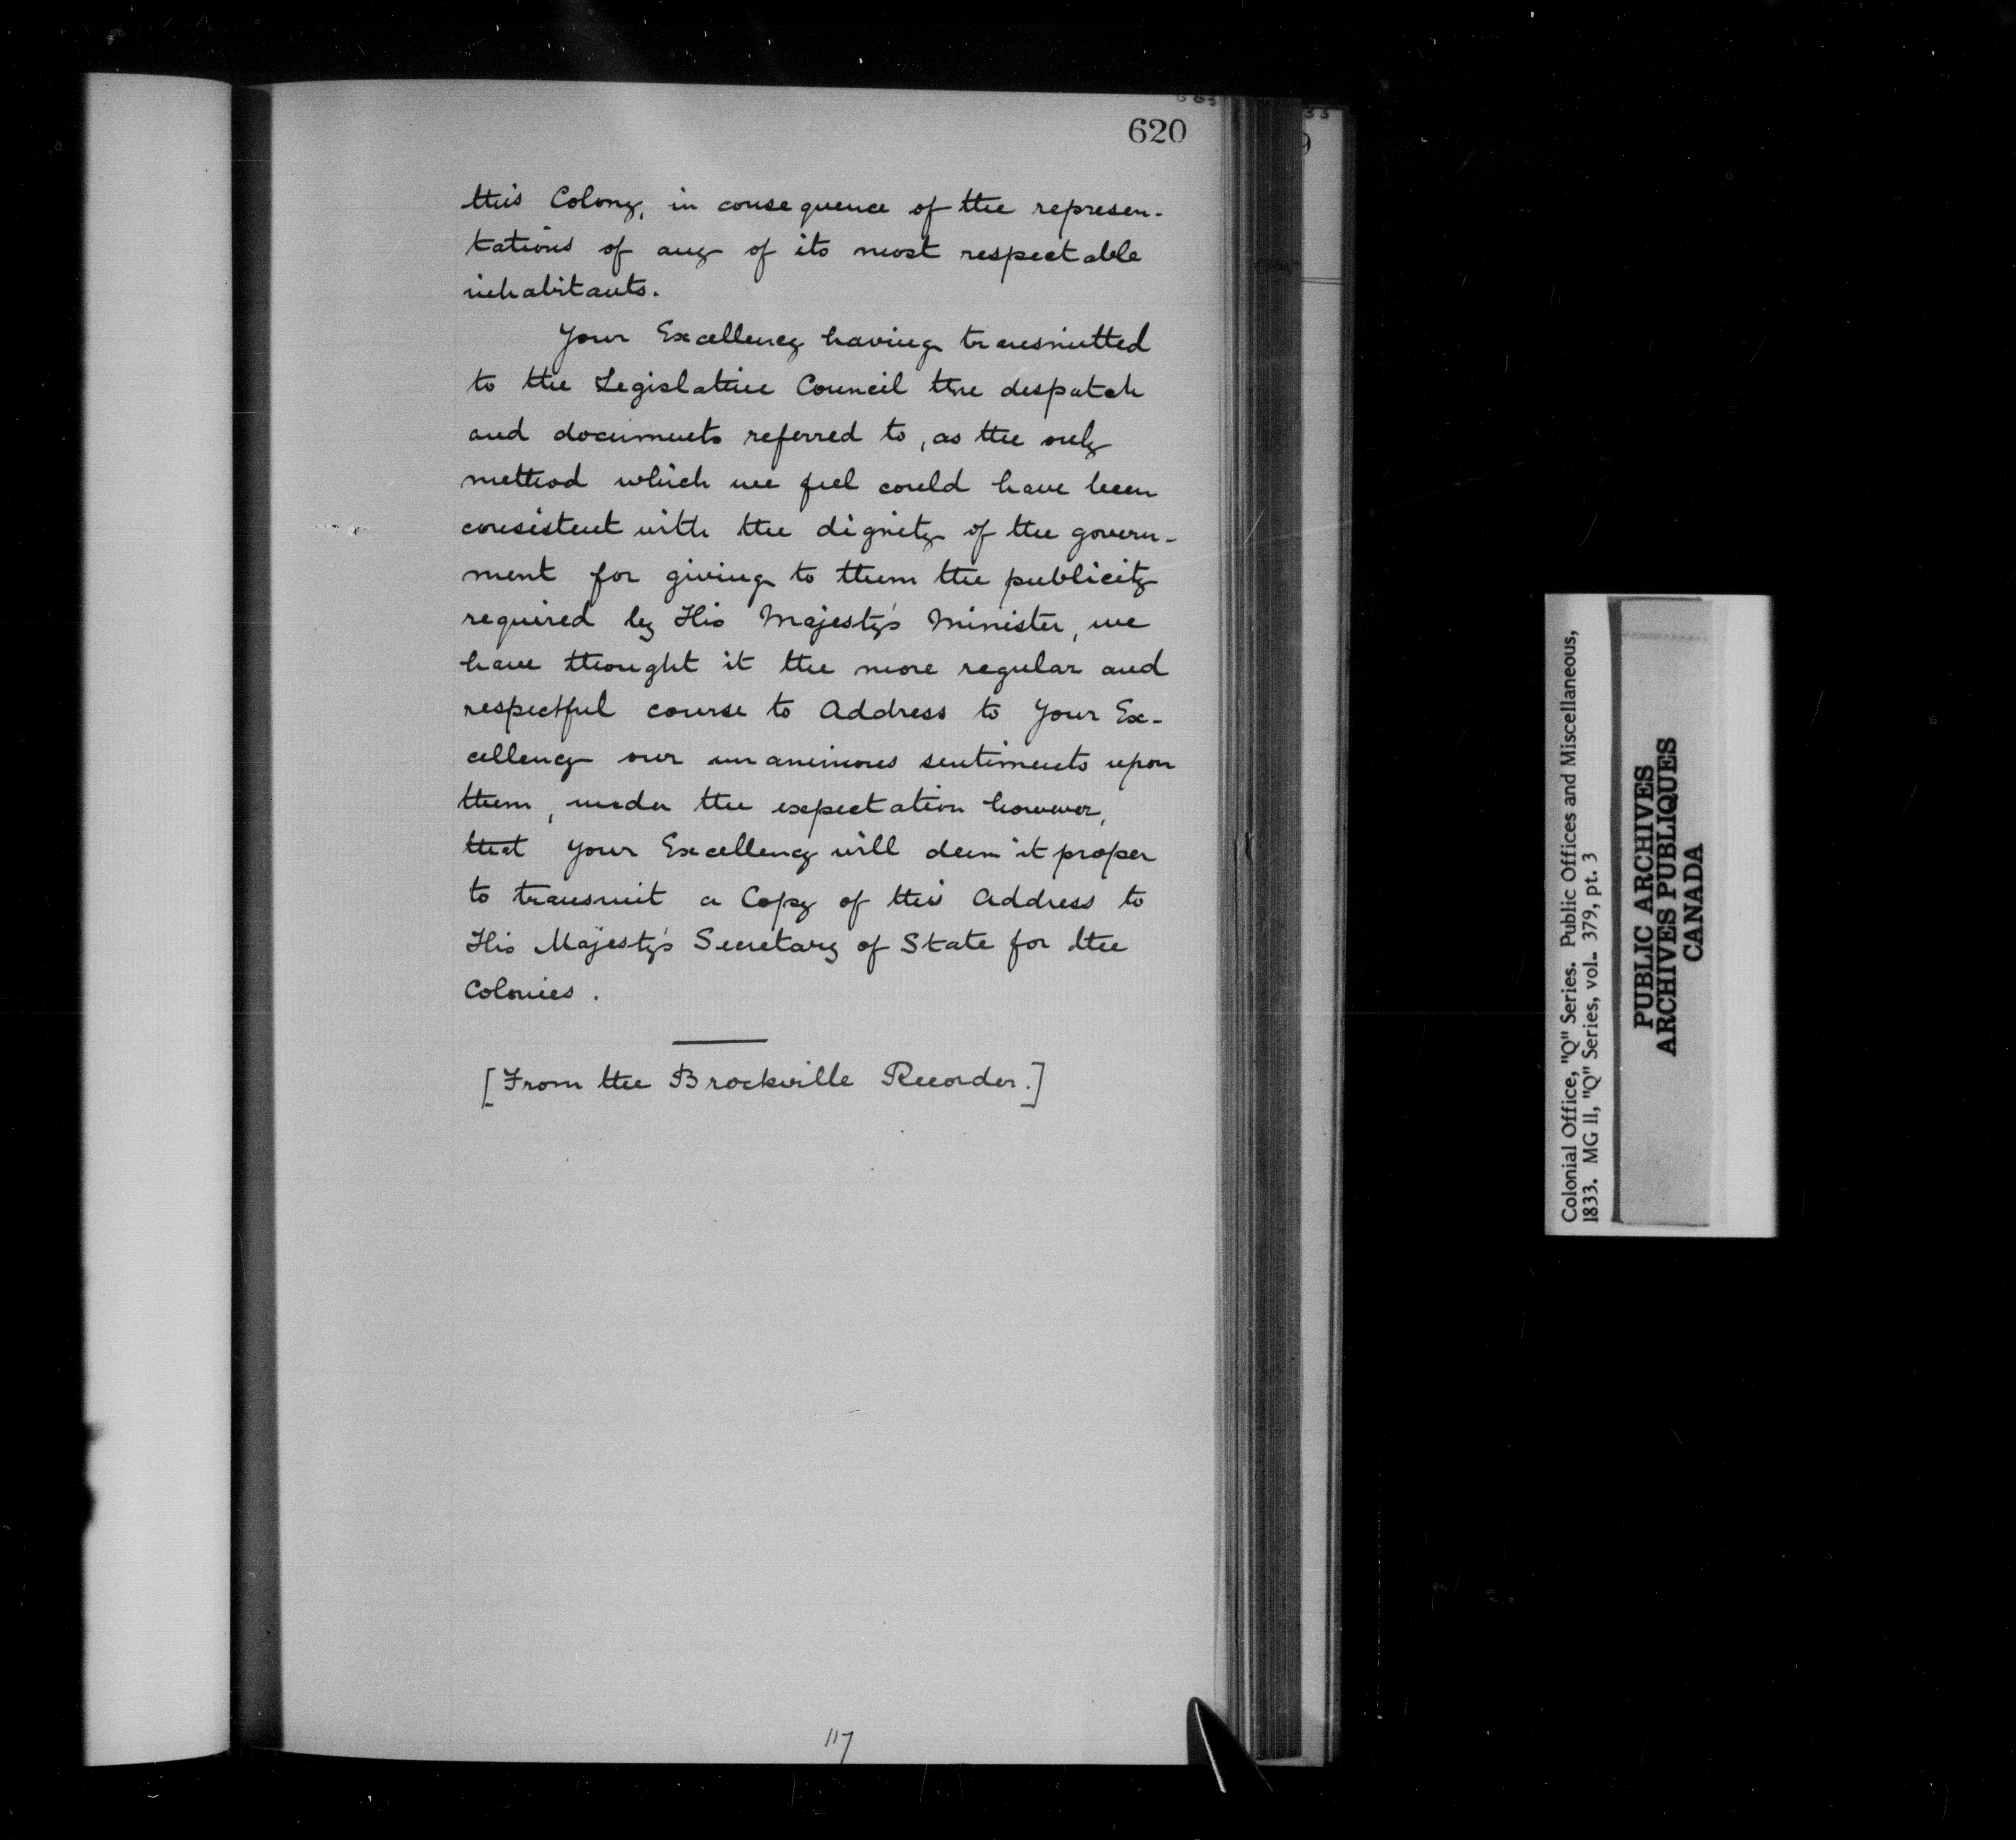 620
this Colony, in consequence of the represen-
tations of any of its most respectable
inhabitants.
Your Excellency having transmitted
to the Legislative Council the despatch
and documents referred to, as the only
method which we feel could have been
consistent with the dignity of the govern-
ment for giving to them the publicity
required by His Majesty's Minister, we
have thought it the more regular and
respectful course to Address to Your Ex-
cellency our unanimous sentiments upon
them, under the expectation however,
that Your Excellency will deem it proper
to transmit a Copy of this Address to
His Majesty's Secretary of State for the
Colonies.
[From the Brockville Recorder.]
117
Colonial Office, "Q" Series. Public Offices and Miscellaneous,
1833. MG 11, "Q" Series, vol. 379, pt. 3
PUBLIC ARCHIVES
ARCHIVES PUBLIQUES
CANADA